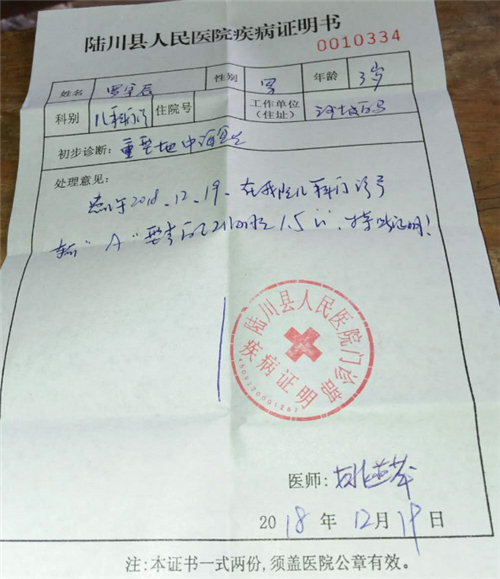 陆川县人民医院疾病证明书
0010334
姓名 性别 男 年龄 3岁
科别 儿科门诊 住院号 工作单位(住址)
初步诊断: 重型地中海贫血
处理意见:
患儿于2018.12.19.在我院儿科门诊
输"A"型 1.5U.特此证明!
陆川县人民医院门诊部
疾病证明
医师:
2018年12月19日
注:本证书一式两份,须盖医院公章有效。